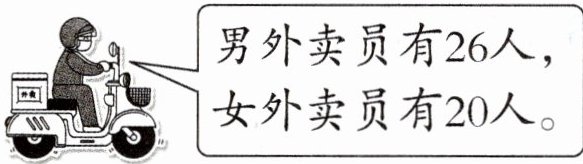 男外卖员有26人，
女外卖员有20人。
外卖